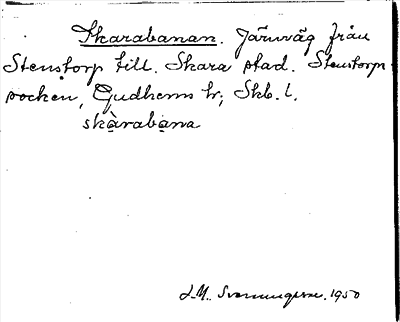 Skarabanan. Järnväg från
Stenstorp till Skara stad. Stenstorps
socken, Gudhems hr; Skb. l.
skàrabana
J.M. Svenungsson. 1950